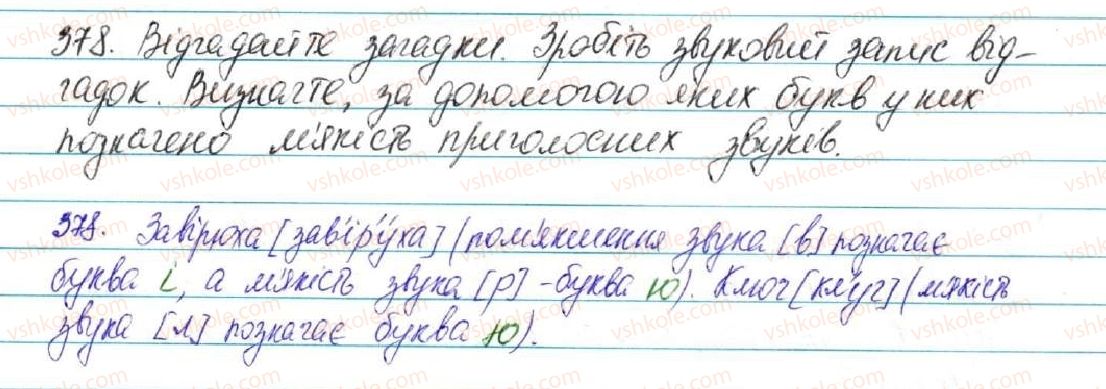 378. Відгадайте загадки. Зробіть звуковий запис від-
гадок. Визначте, за допомогою яких букв у них
позначено м'якість приголосних звуків.
378. Завірюха [зав'ір'у́ха] (пом'якшення звука [в] позначає
буква і, а м'якість звука [р] - буква ю). Ключ [кл'уч] (м'якість
звука [л] позначає буква ю).